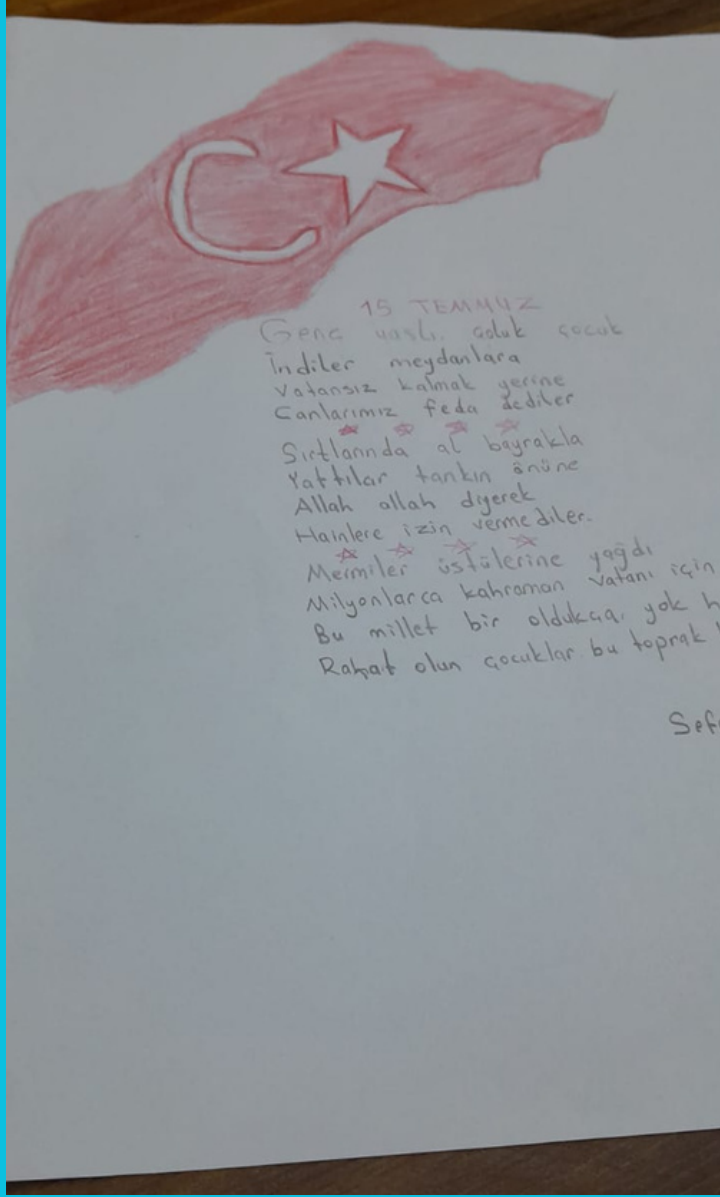 15 TEMMUZ
Genç yaşlı, çoluk çocuk
İndiler meydanlara
Vatansız kalmak yerine
Canlarımız feda dediler
Sırtlarında al bayrakla
Yattılar tankın önüne
Allah allah diyerek
Hainlere izin vermediler.
Mermiler üstülerine yağdı
Milyonlarca kahraman vatanı için
Bu millet bir oldukça, yok
Rahat olun çocuklar bu toprak